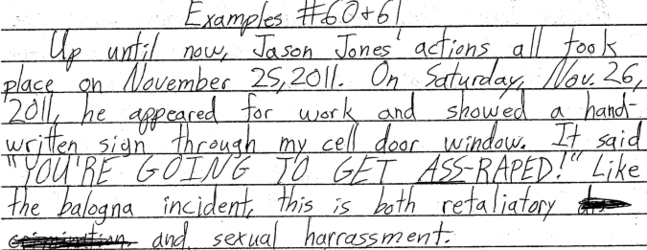 Examples #60+61
Up until now, Jason Jones' actions all took
place on November 25, 2011. On Saturday, Nov. 26,
2011, he appeared for work and showed a hand-
written sign through my cell door window. It said
"YOU'RE GOING TO GET ASS-RAPED!" Like
the balogna incident, this is both retaliatory
and sexual harrassment.